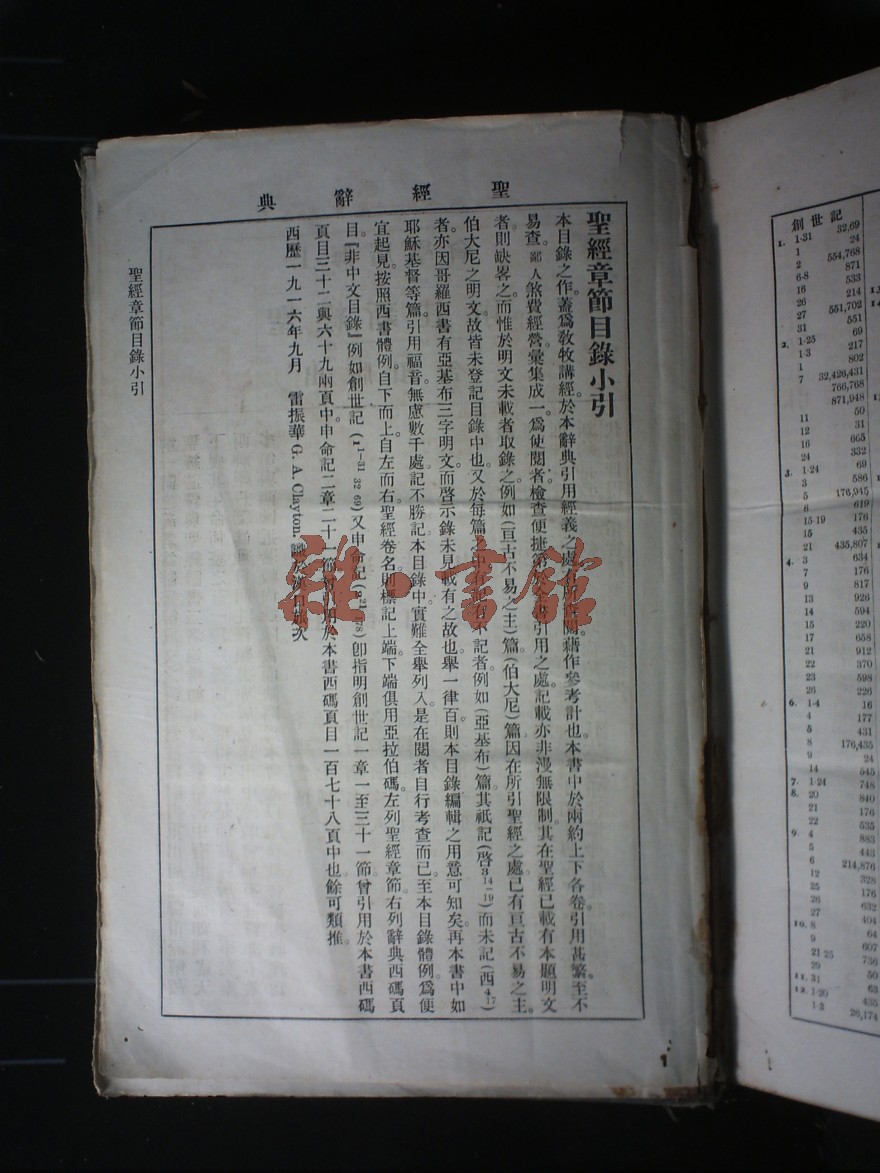 聖經辭典
聖經章節目錄小引
本目錄之作。蓋爲教牧講經於本辭典引用經義之處有所查閱藉作參考計也。本書中於兩約上下各卷。引用甚繁。至不
易查。鄙人煞費經營。彙集成一。爲使閱者檢查便捷。引用之處。記載亦非漫無限制。其在聖經已載有本題明文
者。則缺畧之。而惟於明文未載者取錄之。例如(亘古不易之主)篇(伯大尼)篇因在所引聖經之處。已有亘古不易之主。
伯大尼之明文。故皆未登記目錄中也。又於每篇不記者。例如(亞基布)篇。其祇記(啓3 14-19)而未記(西4 17)
者。亦因哥羅西書有亞基布三字明文。而啓示錄未見載有之故也。舉一律百。則本目錄編輯之用意可知矣。再本書中如
耶穌基督等篇。引用福音。無慮數千處。記不勝記。本目錄中。實難全舉列入。是在閱者自行考查而已。至本目錄體例。爲便
宜起見。按照西書體例。自下而上。自左而右。聖經卷名。則標記上端。下端俱用亞拉伯碼。左列聖經章節。右列辭典西碼頁
目。『非中文目錄』例如創世記(1 1-31 32 69)又申命記(2 21 178)卽指明創世記一章一至三十一節。曾引用於本書西碼
頁目三十二與六十九兩頁中。申命記二章二十一節。曾引用於本書西碼頁目一百七十八頁中也。餘可類推。
西歷一九一六年九月 雷振華 G. A. Clayton. 識於漢口旅次
聖經章節目錄小引
雜·書館
創世記
1. 1-31 32,69
1 24
2 554,768
6-8 871
16 533
26 214
27 551,702
31 551
2. 1-25 69
1-3 217
1 802
7 32,426,431
766,768
871,948
11 50
12 31
16 665
24 332
3. 1-24 69
3 586
5 176,945
6 619
15-19 176
15 435
21 435,807
4. 3 634
7 176
9 817
13 926
14 594
15 220
17 658
21 912
22 370
23 598
26 226
6. 1-4 16
4 177
5 431
8 176,435
9 24
14 545
7. 1-24 748
8. 20 840
21 176
22 535
9. 4 883
5 443
6 214,876
12 328
25 176
26 632
27 404
10. 8 64
9 607
21 25 736
29 50
11. 31 63
12. 1-20 435
1-3 26,174